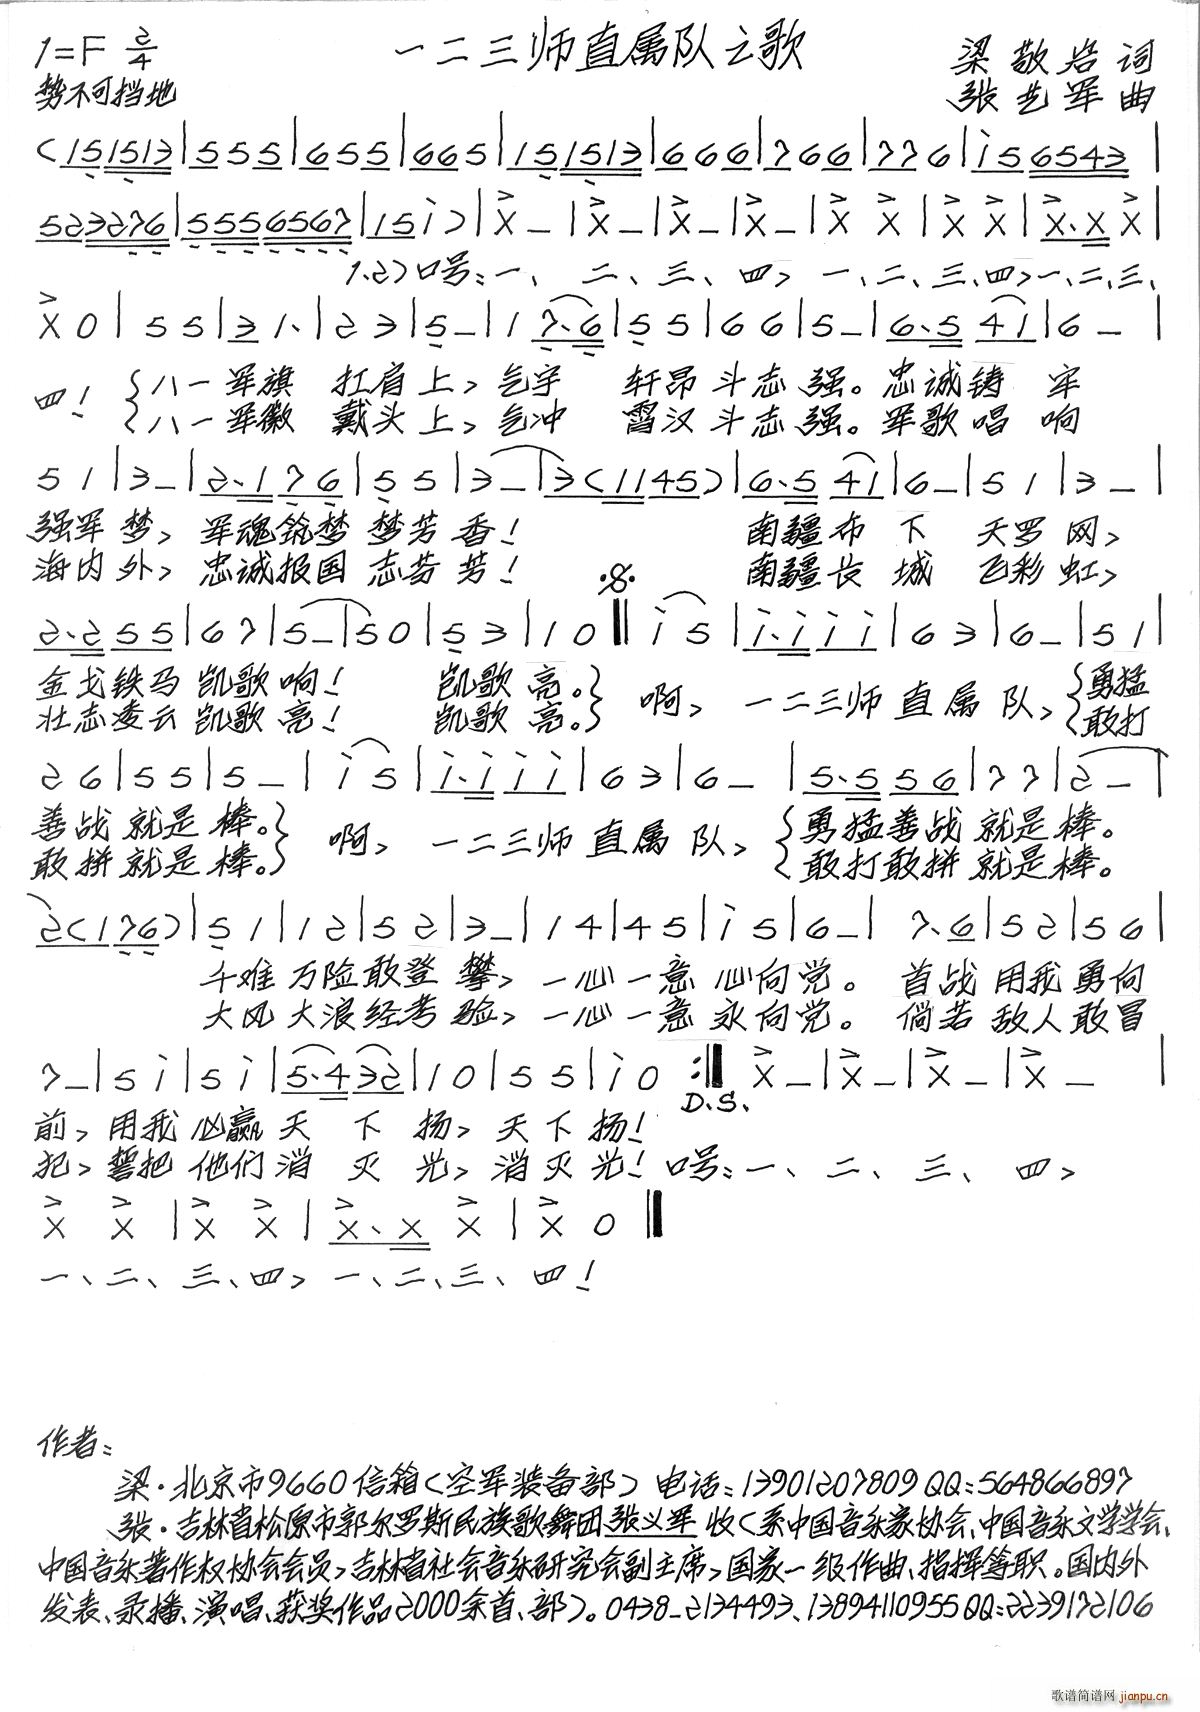 1=F 2/4 一二三师直属队之歌 梁敬岩 词
势不可挡地 张艺军 曲
(151513|555|655|665|151513|666|766|776|i56543|
523276|5556567|15i)|X_|X_|X_|X_|X X|X X|X.X X|
1.2)口号:一、二、三、四,一、二、三、四,一、二、三、
X 0|55|31.|23|5_|17.6|55|66|5_|6.5 41|6_|
四! {八一军旗 扛肩上,气宇 轩昂斗志强。忠诚铸 牢
{八一军徽 戴头上,气冲 霄汉斗志强。军歌唱 响
51|3_|2.1 76|55|3_|3(1145)|6.5 41|6_|51|3_|
强军梦,军魂筑梦 梦芳香! 南疆布下 天罗网,
海内外,忠诚报国 志芬芳! 南疆长城 飞彩虹,
2.2 55|67|5_|50|53|10‖i5|i.i i i|63|6_|51|
金戈铁马 凯歌响! 凯歌亮。} 啊,一二三师直属队,{勇猛
壮志凌云 凯歌亮! 凯歌亮。} {敢打
26|55|5_|i5|i.i i i|63|6_|5.5 56|77|2_|
善战就是棒。} 啊,一二三师直属队,{勇猛善战就是棒。
敢拼就是棒。} {敢打敢拼就是棒。
2(176)|51|12|52|3_|14|45|i5|6_|7.6|52|56|
千难万险敢登攀,一心一意心向党。首战用我勇向
大风大浪经考验,一心一意永向党。倘若敌人敢冒
7_|5i|5i|5.4 32|10|55|i0:‖X_|X_|X_|X_|
D.S.
前,用我必赢天下扬,天下扬!
犯,誓把他们消灭光,消灭光!口号:一、二、三、四,
X X|X X|X.X X|X 0‖
一、二、三、四,一、二、三、四!
作者:
梁·北京市9660信箱(空军装备部) 电话:13901207809 QQ:564866897
张·吉林省松原市郭尔罗斯民族歌舞团张义军 收(系中国音乐家协会、中国音乐文学学会、
中国音乐著作权协会会员,吉林省社会音乐研究会副主席,国家一级作曲、指挥等职。国内外
发表、录播、演唱、获奖作品2000余首、部)。0438_2134493、13894110955 QQ:2239172106
歌谱简谱网 jianpu.cn